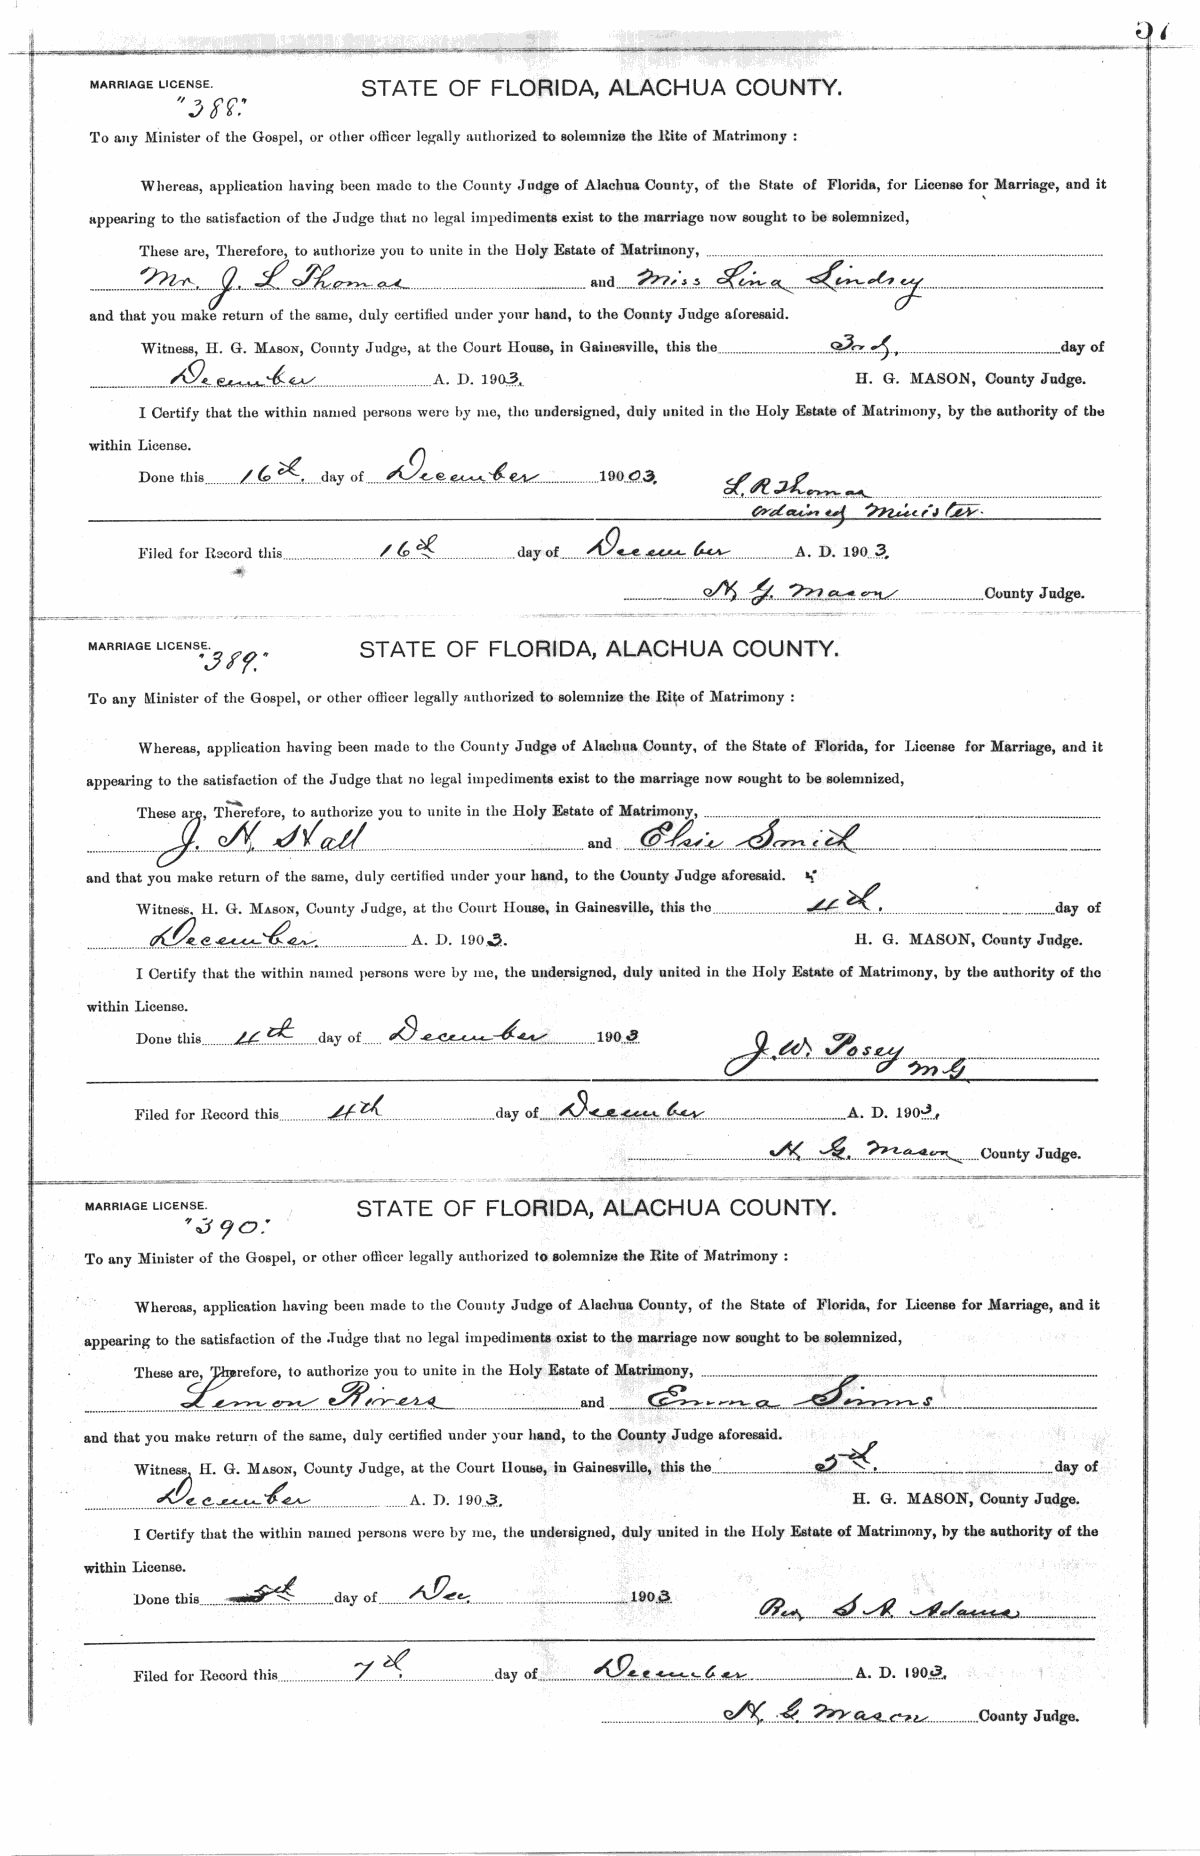 57
MARRIAGE LICENSE. STATE OF FLORIDA, ALACHUA COUNTY.
"388."
To any Minister of the Gospel, or other officer legally authorized to solemnize the Rite of Matrimony :
Whereas, application having been made to the County Judge of Alachua County, of the State of Florida, for License for Marriage, and it
appearing to the satisfaction of the Judge that no legal impediments exist to the marriage now sought to be solemnized,
These are, Therefore, to authorize you to unite in the Holy Estate of Matrimony,
Mr. J. L Thomas and Miss Lina Lindsey
and that you make return of the same, duly certified under your hand, to the County Judge aforesaid.
Witness, H. G. MASON, County Judge, at the Court House, in Gainesville, this the 3rd, day of
December A. D. 1903. H. G. MASON, County Judge.
I Certify that the within named persons were by me, the undersigned, duly united in the Holy Estate of Matrimony, by the authority of the
within License.
Done this 16th. day of December 19003. L. R Thomas
ordained Minister.
Filed for Record this 16th day of December A. D. 1903.
H G. Mason County Judge.
MARRIAGE LICENSE. STATE OF FLORIDA, ALACHUA COUNTY.
"389."
To any Minister of the Gospel, or other officer legally authorized to solemnize the Rite of Matrimony :
Whereas, application having been made to the County Judge of Alachua County, of the State of Florida, for License for Marriage, and it
appearing to the satisfaction of the Judge that no legal impediments exist to the marriage now sought to be solemnized,
These are, Therefore, to authorize you to unite in the Holy Estate of Matrimony,
J. H. Hall and Elsie Smith
and that you make return of the same, duly certified under your hand, to the County Judge aforesaid.
Witness, H. G. MASON, County Judge, at the Court House, in Gainesville, this the 4th. day of
December. A. D. 1903. H. G. MASON, County Judge.
I Certify that the within named persons were by me, the undersigned, duly united in the Holy Estate of Matrimony, by the authority of the
within License.
Done this 4th day of December 1903 J. W. Posey
M G
Filed for Record this 4th day of December A. D. 1903.
H. G. Mason County Judge.
MARRIAGE LICENSE. STATE OF FLORIDA, ALACHUA COUNTY.
"390."
To any Minister of the Gospel, or other officer legally authorized to solemnize the Rite of Matrimony :
Whereas, application having been made to the County Judge of Alachua County, of the State of Florida, for License for Marriage, and it
appearing to the satisfaction of the Judge that no legal impediments exist to the marriage now sought to be solemnized,
These are, Therefore, to authorize you to unite in the Holy Estate of Matrimony,
Lemon Rivers and Emma Simms
and that you make return of the same, duly certified under your hand, to the County Judge aforesaid.
Witness, H. G. MASON, County Judge, at the Court House, in Gainesville, this the 5th. day of
December A. D. 1903. H. G. MASON, County Judge.
I Certify that the within named persons were by me, the undersigned, duly united in the Holy Estate of Matrimony, by the authority of the
within License.
Done this 5th day of Dec. 1903 Rev S A Adams
Filed for Record this 7th. day of December A. D. 1903.
H. G. Mason County Judge.